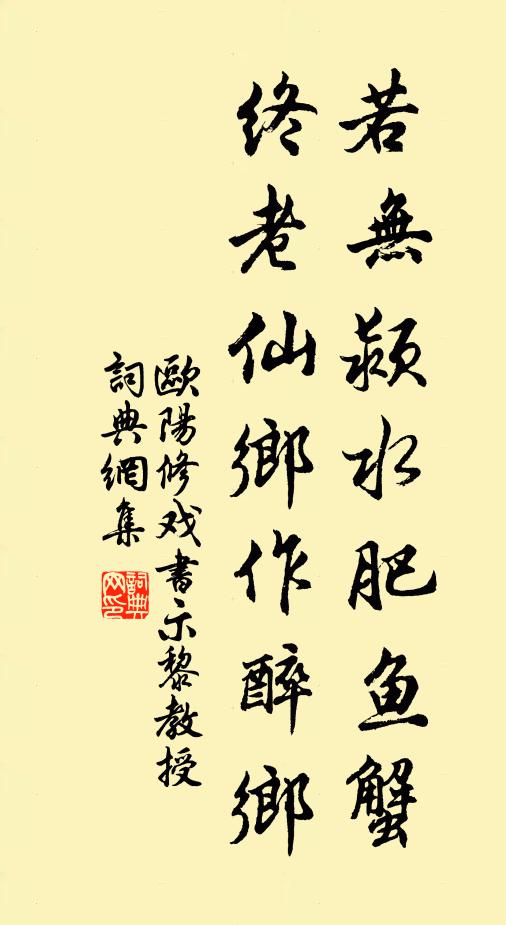 若無潁水肥鱼蟹
终老仙鄉作醉鄉
歐陽修戏書示黎教授
詞典網集
詞典网印